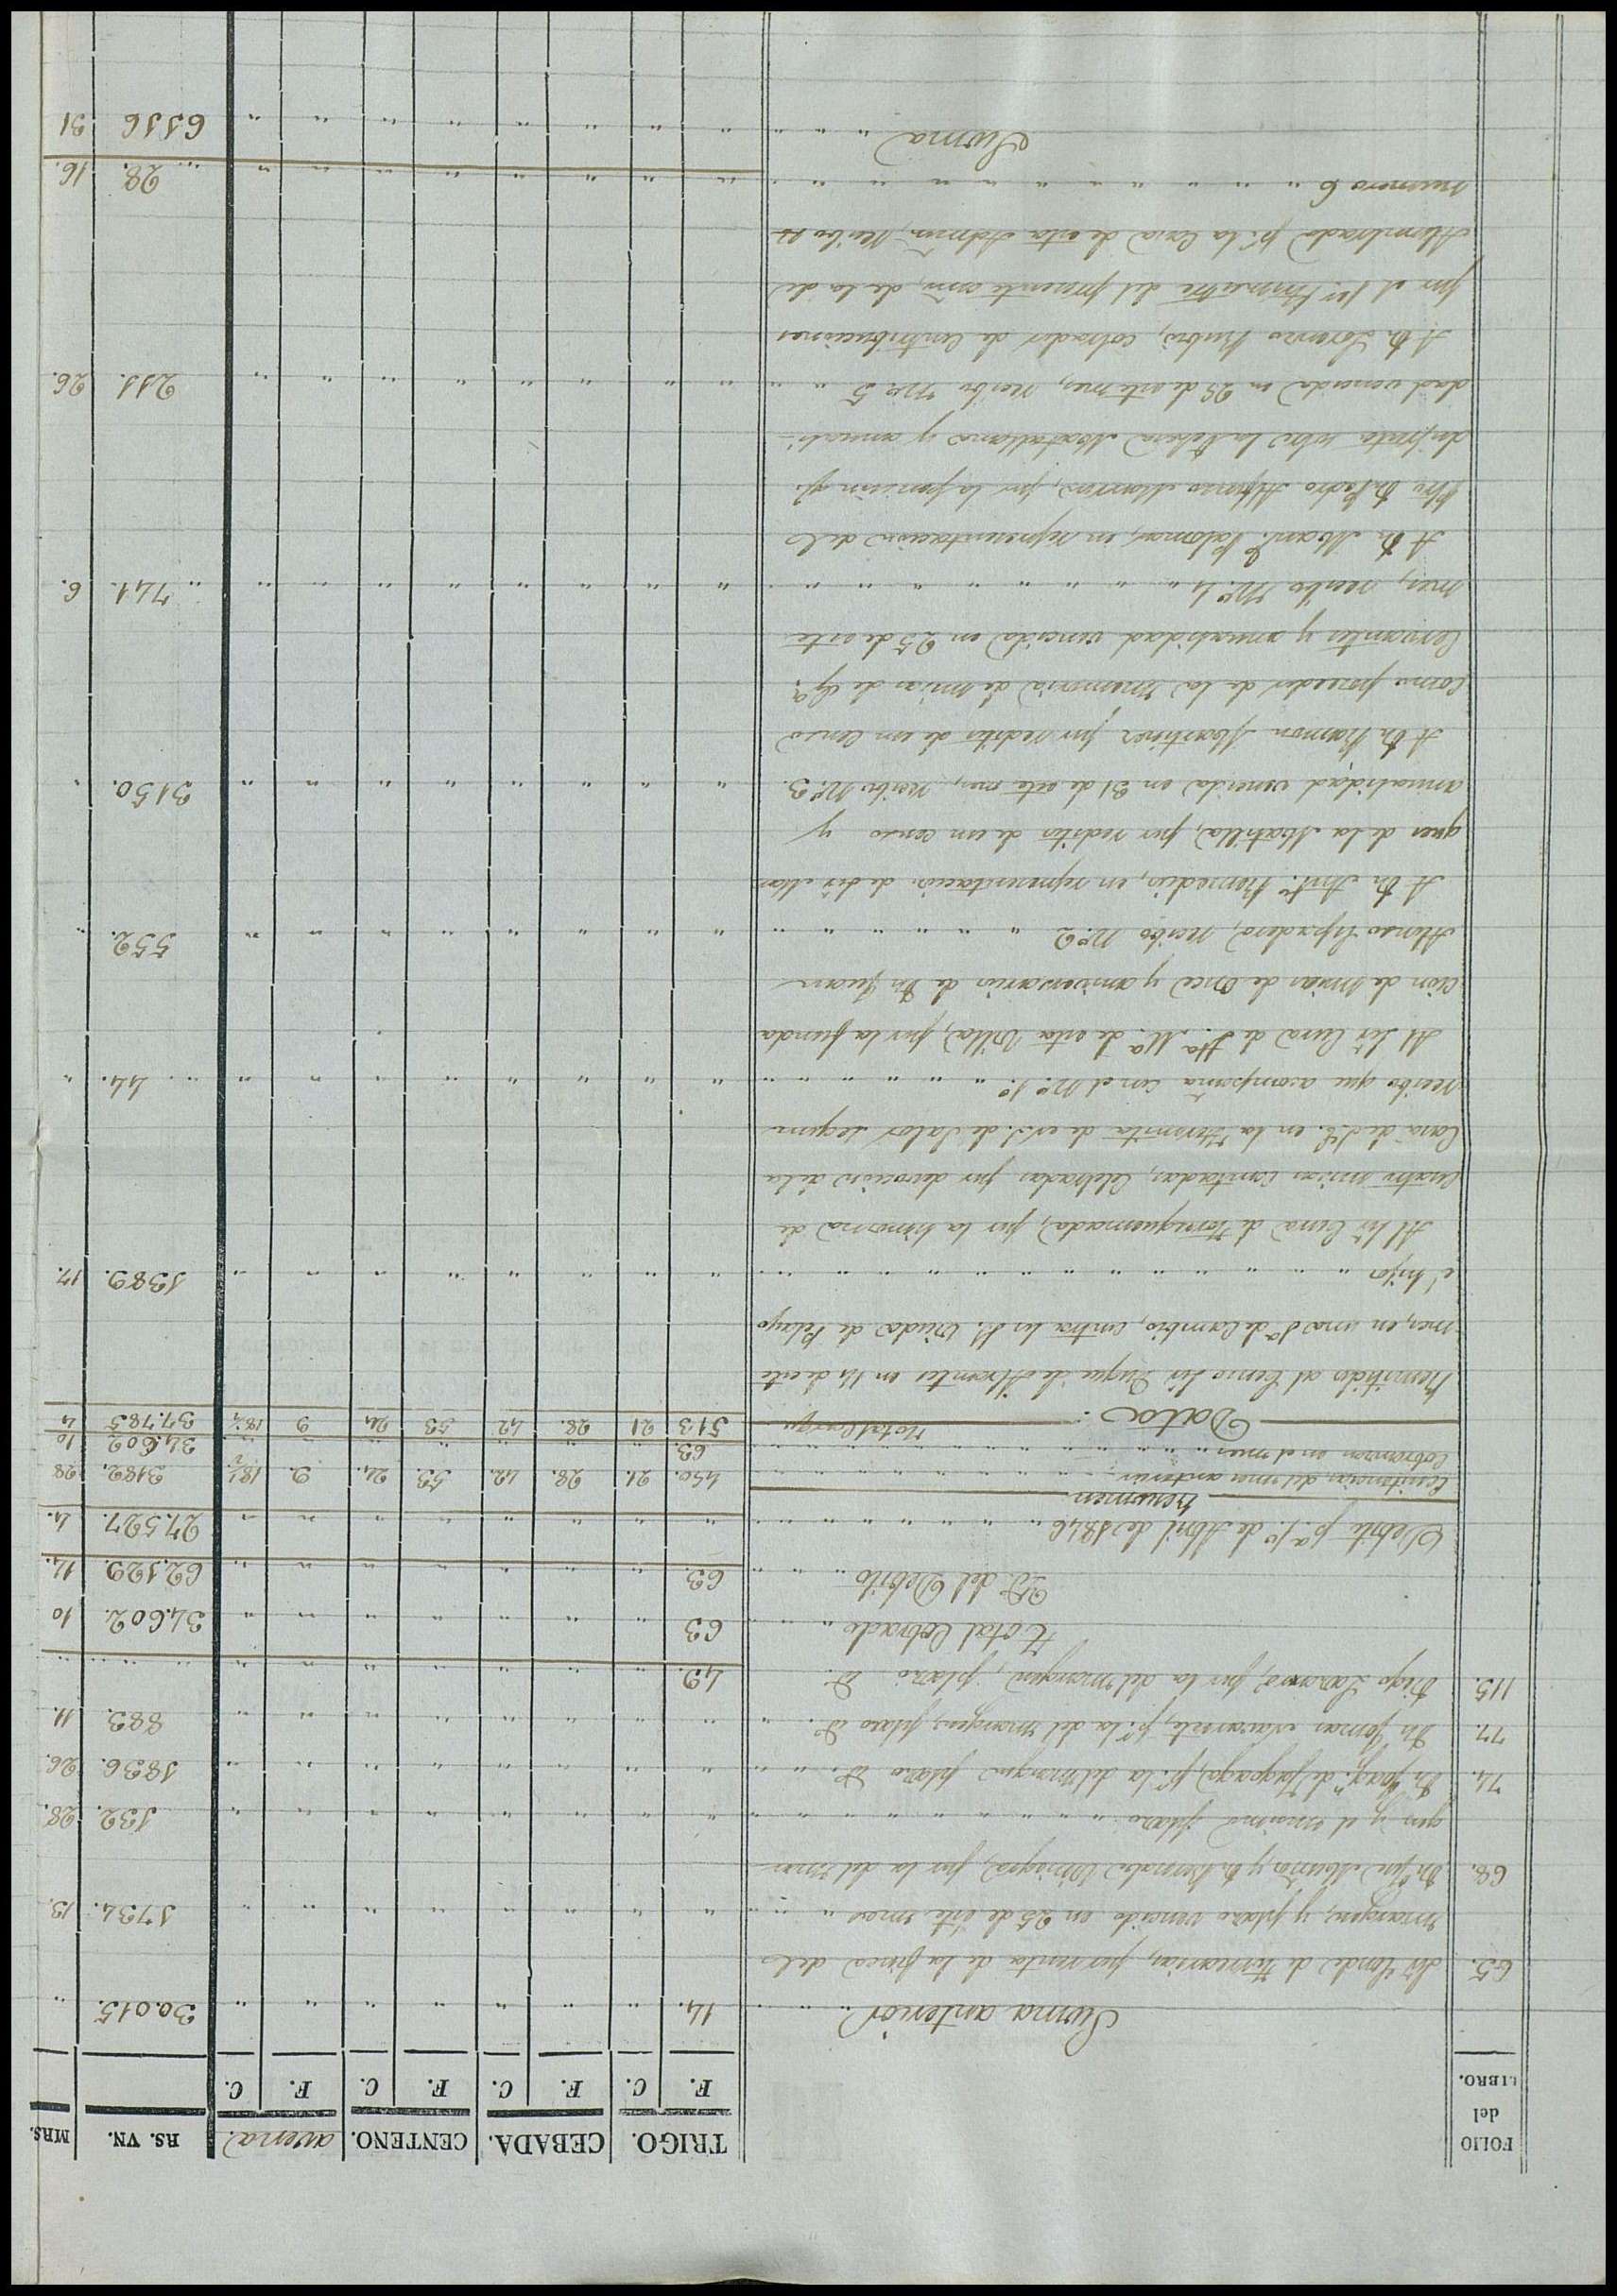 FOLIO del LIBRO. TRIGO. CEBADA. CENTENO. avena. RS. VN. MRS.
F. C. F. C. F. C. F. C.
Suma anterior 14. " " " " " " " 30.015. "
65. Sr. Conde de por renta de la finca del
margen, y plazo vencido en 25 de este mes " " " " " " " " 1734. 13.
68. Dn. Jn. y Dn. Bernabé por la del mar
gen y el mismo plazo " " " " " " " " 132. 28.
74. Dn. Joaqn. de pr. la del margen plazo id. " " " " " " " " 1836. 26.
77. Dn. Tomas Navarrete, pr. la del margen, plazo id. " " " " " " " " 883. 11.
115. Diego por la del margen, plazo id. 49. " " " " " " " " "
Total Cobrado 63 " " " " " " " 34.602. 10
Id. del Debito 63. " " " " " " " 62.129. 14.
Debito pa. 1o. de Abril de 1846 " " " " " " " " 27.527. 4.
Resumen
Existencia del mes anterior 450. 21. 28. 12. 53. 24. 9. 18½ 3182. 28
Cobranza en el mes 63. " " " " " " " 34.602 10
Data. Total Cargo 513 21 28. 12 53 24 9 18½ 37.785 4
Remitido al Exmo Sor. Duque de Abrantes en 14 de este
mes, en una La. de Cambio, contra los Sres. Viuda de Pelayo
é hijos " " " " " " " " 1389. 17.
Al Sr. Cura de Torrequemada, por la limosna de
Cuatro misas Cantadas, Celebradas por devocion á la
Casa de S.E. en la Hermita de N.S. de Salor segun
recibo que acompaña con el No. 1o. " " " " " " " " 44. "
Al Sor. Cura de Sta. Ma. de esta Villa, por la funda
ción de Misas de Once y aniversario de Dn. Juan
Alonso Espadero, Recibo No. 2 " " " " " " " " 552. "
A Dn. Anto. Remedios, en representacion de Sor. Mar
ques de la Matilla, por reditos de un censo y
anualidad vencida en 21 de este mes, Recibo No. 3. " " " " " " " " 3150. "
A Dn. Ramon Martinez por reditos de un Censo
como poseedor de la memoria de Misas de
Cervantes y anualidad vencida en 25 de este
mes, recibo No. 4 " " " " " " " " 741. 6.
A Dn. Manl. Palomar, en representacion del
Pbro. Dn. Pedro Alfonso Marrón, por la pension qe.
disfruta sobre la Dehesa Matallana y anuali-
dad vencida en 28 de este mes, Recibo No. 5 " " " " " " " " 211. 26.
A Dn. Lorenzo Rubio, cobrador de Contribuciones
por el 1er. trimestre del presente año, de la de
Alumbrado pr. la Casa de esta Admon. Recibo
numero 6 " " " " " " " " 28. 16.
Suma " " " " " " " " 6116 31